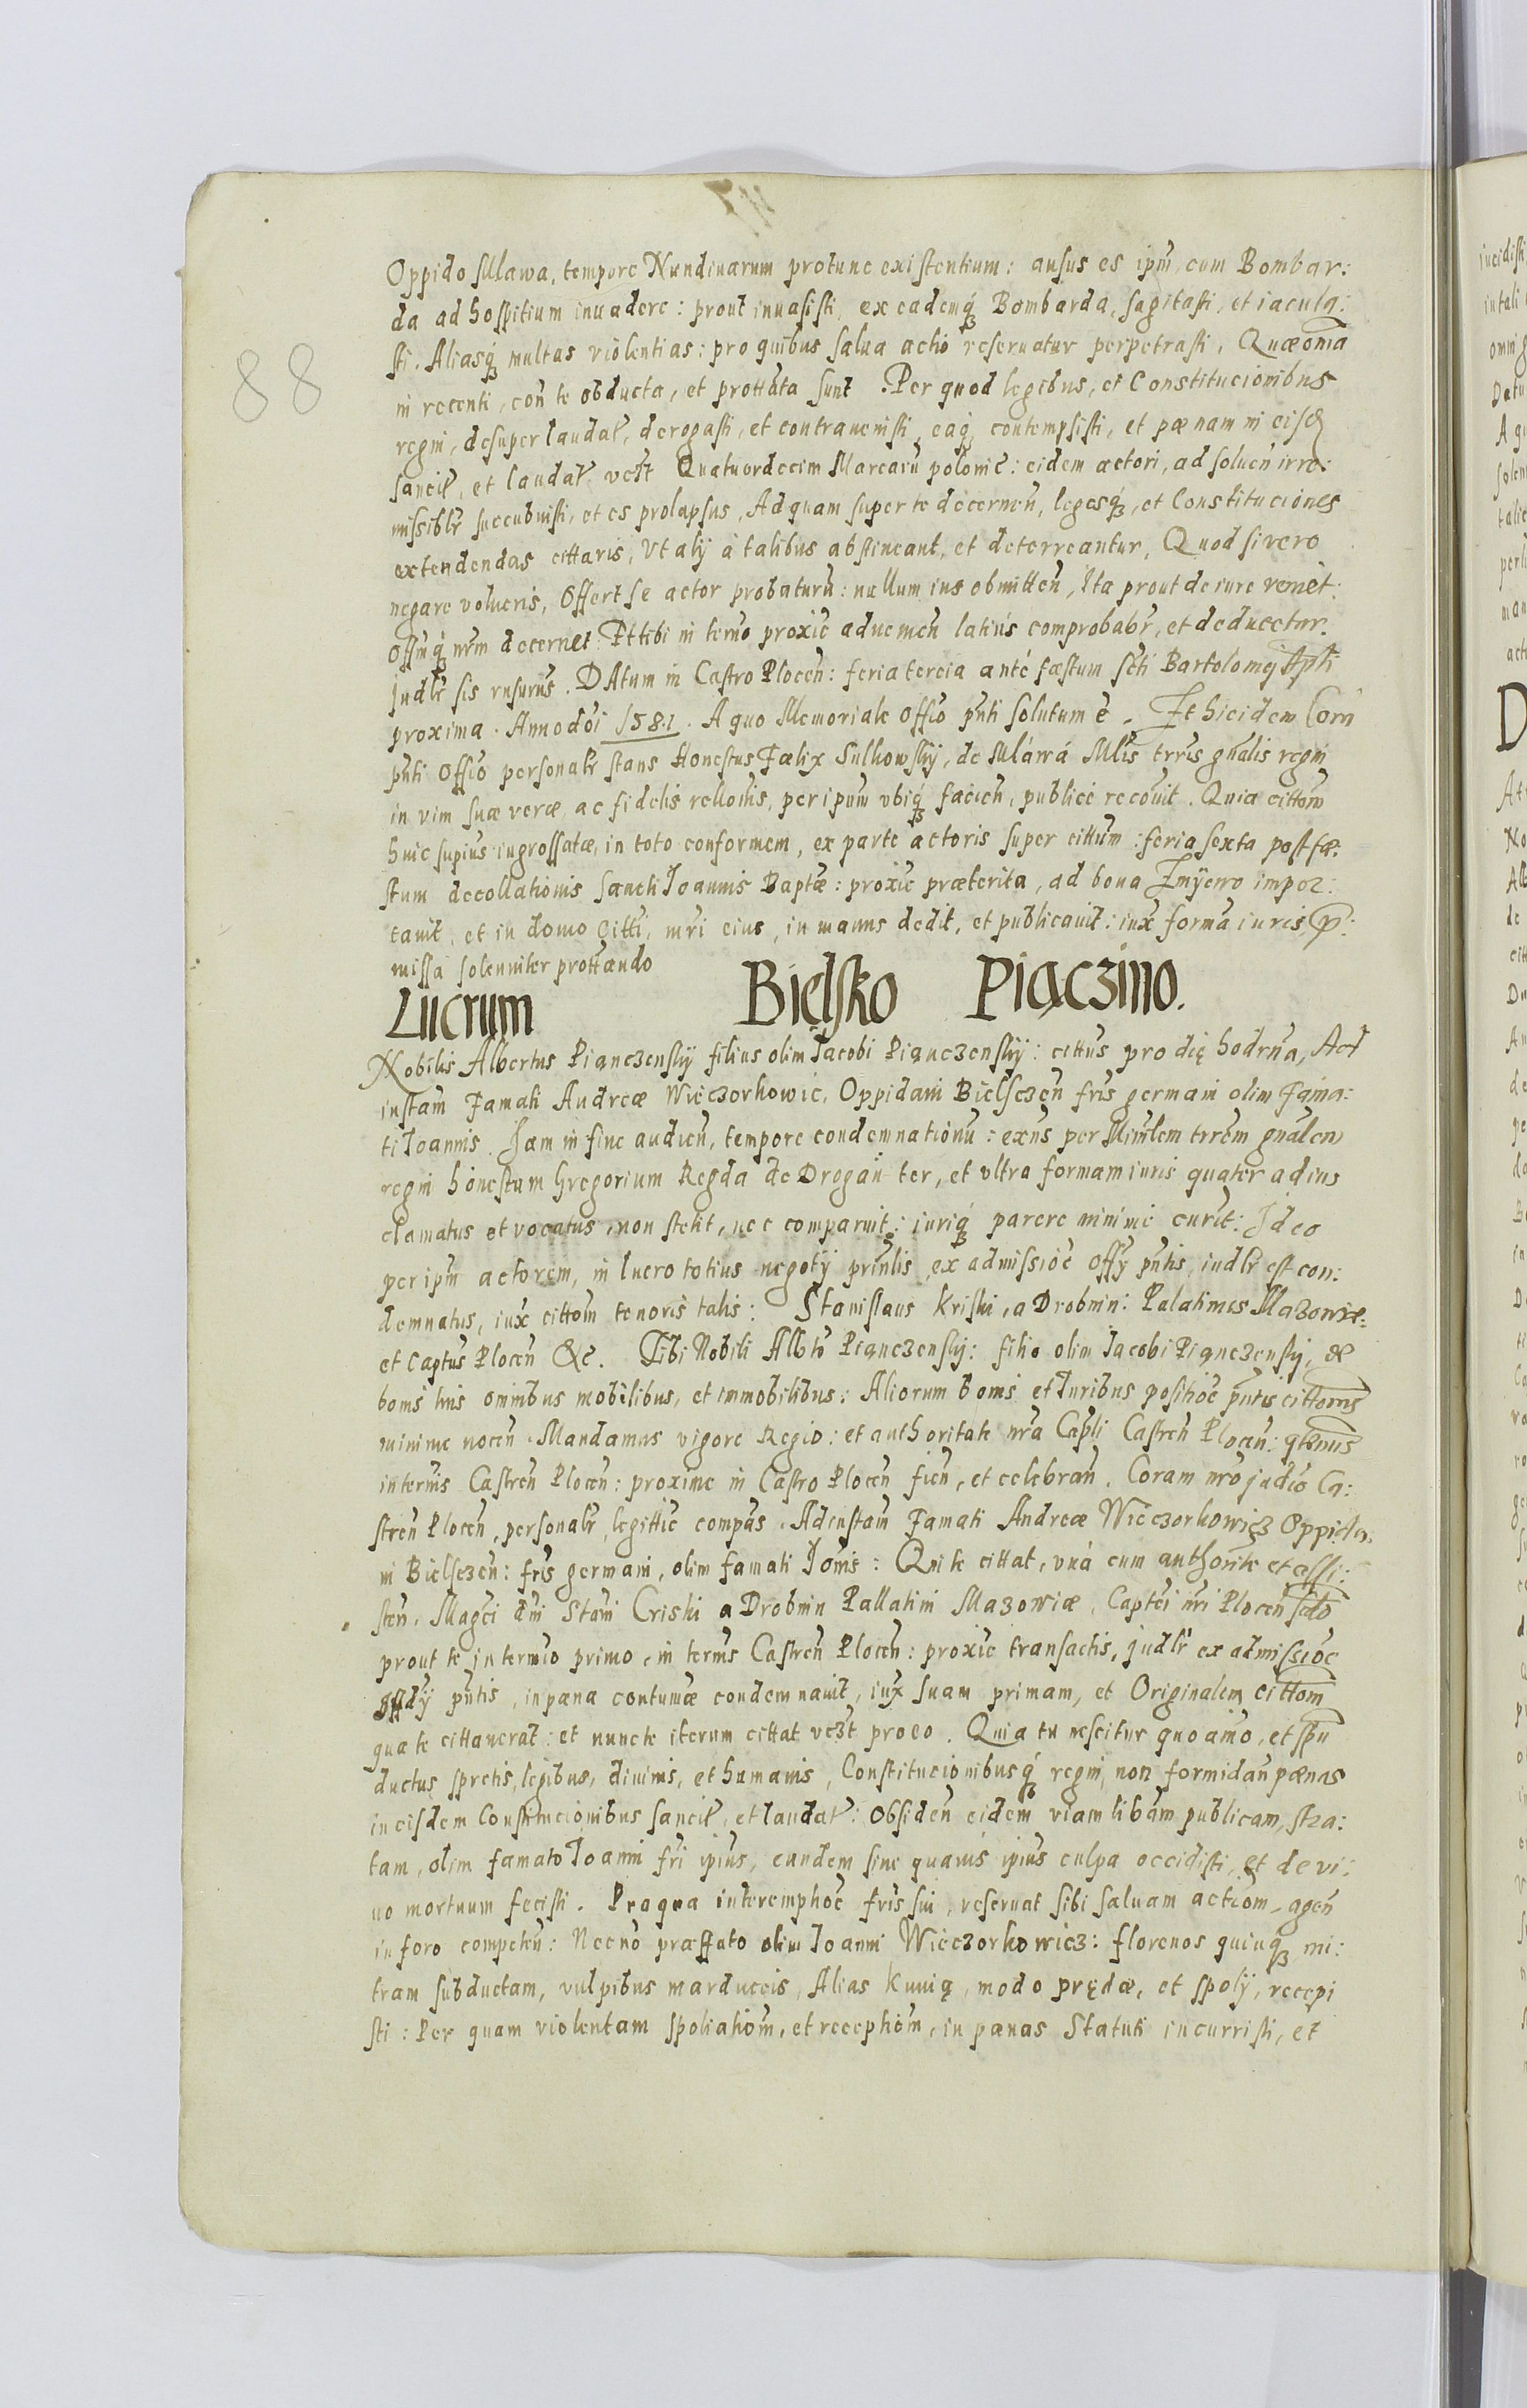 88
Oppido Mlawa, tempore Nundinarum protunc existentium: ausus es ipm̃ cum Bombar:
da ad hospitium inuadere: prout inuasisti, ex eademq́ꝫ Bombarda, sagitasti, et iacula:
sti. Aliasq́ꝫ multas violentias: pro quibus salua actio reseruatur perpetrasti, Quæ om̃ia
in recenti, con̄ te obducta, et prottãta sunt. Per quod legibus, et Constitucionibus
regni, desuper laudat̃, derogasti, et contrauenisti, eaq́ꝫ contempsisti, et pænam in eisd
sancit̃, et laudat̃ vɀt Quatuordecim Marcarũ polonic̃: eidem actori, ad soluen̄ irre:
missiblr̃ succubuisti, et es prolapsus, Ad quam super te decernen̄, legesq́ꝫ, et Constituciones
extendendas cittaris, Vt alij à talibus abstineant, et deterreantur, Quod si vero
negare volueris, Offert se actor probaturũ: nullum ius obmitten̄, Ita prout de iure veniet:
Offm̃q́ꝫ nr̃m decernet. Et tibi in term̃o proxic̃ aduenien̄ latius comprobabr̃, et deducetur.
judlr̃ sis rnsurus. DAtum in Castro Plocen̄: feria tercia anté fæstum scti Bartolomej Apli
proxima. Anno dñi 1581. A quo Memoriale offio pñti solutum ẽ. Et hicidem Corã
pñti offio personalr̃ stans Honestus Fælix Sulkowskÿ, de Mláwá Mlis trr̃is gñalis regni
in vim suæ veræ, ac fidelis rellonĩs, per ipsum vbiq́ꝫ facien̄, publicè recoũit. Quia cittom̃
huic supius ingrossatæ, in toto conformem, ex parte actoris super cittum: feria sexta post fæ:
stum decollationis sancti Joannis Baptæ: proxic̃ præterita, ad bona Zmÿewo impor:
tauit, et in domo citti, mr̃i eius, in manus dedit, et publicauit: iux̃ formã iuris ꝓ:
missa solenniter prottãndo
Lucrum Bielsko Piączino.
Nobilis Albertus Piąnczenskÿ filius olim Jacobi Piąnczenskÿ: cittus pro dię hodrña, Ad
instam̃ Famati Andreæ Wieczorkowic̃, Oppidani Bielsczen̄ fris̃ germani olim Fama:
ti Joannis. Jam in fine audien̄, tempore condemnationũ: exñs per Minrlem trrẽm gñalem
regni honestum Gregorium Regda de Drogan̄ ter, et vltra formam iuris quater ad ius
clamatus et vocatus, non stetit, nec comparuit: iuriq́ꝫ parere minimè curũt: Ideo
per ipm̃ actorem, in lucro totius negotÿ prinlis, ex admissioẽ offÿ pñtis, iudlr̃ est con:
demnatus, iux̃ cittom̃ tenoris talis: Stanislaus Kriski, a Drobnin: Palatinus Mazowiæ:
et Captus Plocen̄ &c̃. Tibi Nobili Albto Piąnczenskÿ: filio olim Jacobi Piąnczenskÿ, de
bonis tuis omnibus mobilibus, et immobilibus: Aliorum bonis et Juribus positioẽ pñtis cittonis
minime nocen̄. Mandamus vigore Regio: et authoritate nr̃a Capli Castren̄ Plocen̄: qtenus
in termis Castren̄ Plocen̄: proxime in Castro Plocen̄ fien̄, et celebran̄. Coram nr̃o judio Ca:
stren̄ Plocen̄, personalr̃, legittie compãs. Ad instam̃ Famati Andreæ Wieczorkowicz Oppida:
ni Bielsczen̄: fris̃ germani, olim famati Jonĩs: Qui te cittat, vná cum authorite et assi:
sten̄. Magci dñi Stani Criski a Drobnin Pallatini Mazowiæ, Captei nr̃i Plocen̄
prout te in termio primo, in terms Castren̄ Plocen̄: proxie transactis, judlr̃ ex admissioẽ
offÿ pñtis, in pæna contumæ condemnauit, iux̃ suam primam, et Originalem cittom̃
qua te cittauerat: et nunc te iterum cittat vɀt pro eo. Quia tu nescitur quo aĩmo, et spũ
ductus, spretis legibus, diuinis, et humanis, Constitucionibusq́ꝫ regni, non formidan̄ pænas
in eisdem Constitucionibus sancit̃, et laudat̃: Obsiden̄ eidem viam libãm publicam, stra:
tam, olim famato Joanni fri ipius, eundem sine quauis ipius culpa occidisti, et de vi:
uo mortuum fecisti. Pro qua interemptioẽ fris̃ sui, reseruat sibi saluam actiom̃, agen̄
in foro competen̄: Necno præffato olim Joanni Wieczorkowicz: florenos quinq́ꝫ mi:
tram subductam, vulpibus marduccis, Alias Kunią, modo prędæ, et spolÿ, recepi
sti: Per quam violentam spoliatiom̃, et receptiom̃, in pænas Statuti incurristi, et